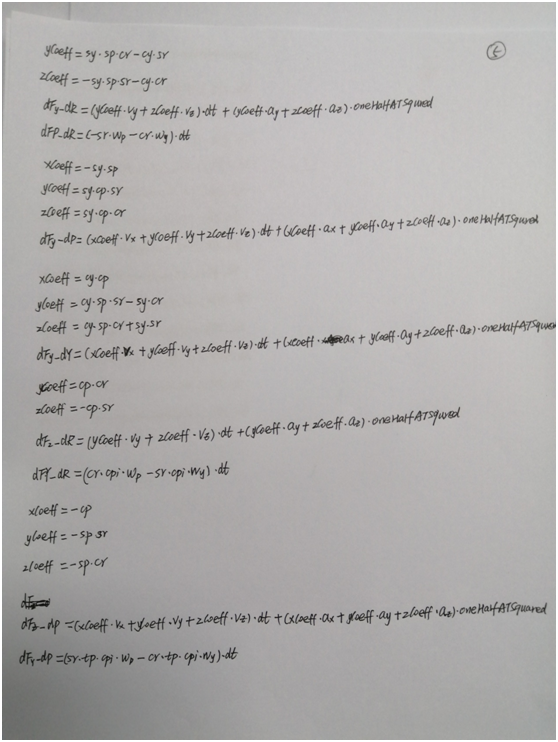 ⑥
yCoeff = sy·sp·cr-cy·sr
zCoeff = -sy·sp·sr-cy·cr
dFy_dR = (yCoeff·vy + zCoeff·vz)·dt + (yCoeff·ay + zCoeff·az)·oneHalfATSqured
dFP_dR = (-sr·wp-cr·wy)·dt
xCoeff = -sy·sp
yCoeff = sy·cp·sr
zCoeff = sy·cp·cr
dFy-dp = (xCoeff·vx + yCoeff·vy + zCoeff·vz)·dt + (xCoeff·ax + yCoeff·ay + zCoeff·az)·oneHalfATSqured
xCoeff = cy·cp
yCoeff = cy·sp·sr-sy·cr
zCoeff = cy·sp·cr+sy·sr
dFy_dY = (xCoeff·vx + yCoeff·vy + zCoeff·vz)·dt + (xCoeff·ax + yCoeff·ay + zCoeff·az)·oneHalfATSqured
yCoeff = cp·cr
zCoeff = -cp·sr
dFz_dR = (yCoeff·vy + zCoeff·vz)·dt + (yCoeff·ay + zCoeff·az)·oneHalfATSqured
dFY_dR = (cr·cpi·wp - sr·cpi·wy)·dt
xCoeff = -cp
yCoeff = -sp·sr
zCoeff = -sp·cr
dFz_dp = (xCoeff·vx + yCoeff·vy + zCoeff·vz)·dt + (xCoeff·ax + yCoeff·ay + zCoeff·az)·oneHalfATSquared
dFy_dp = (sr·tp·cpi·wp - cr·tp·cpi·wy)·dt